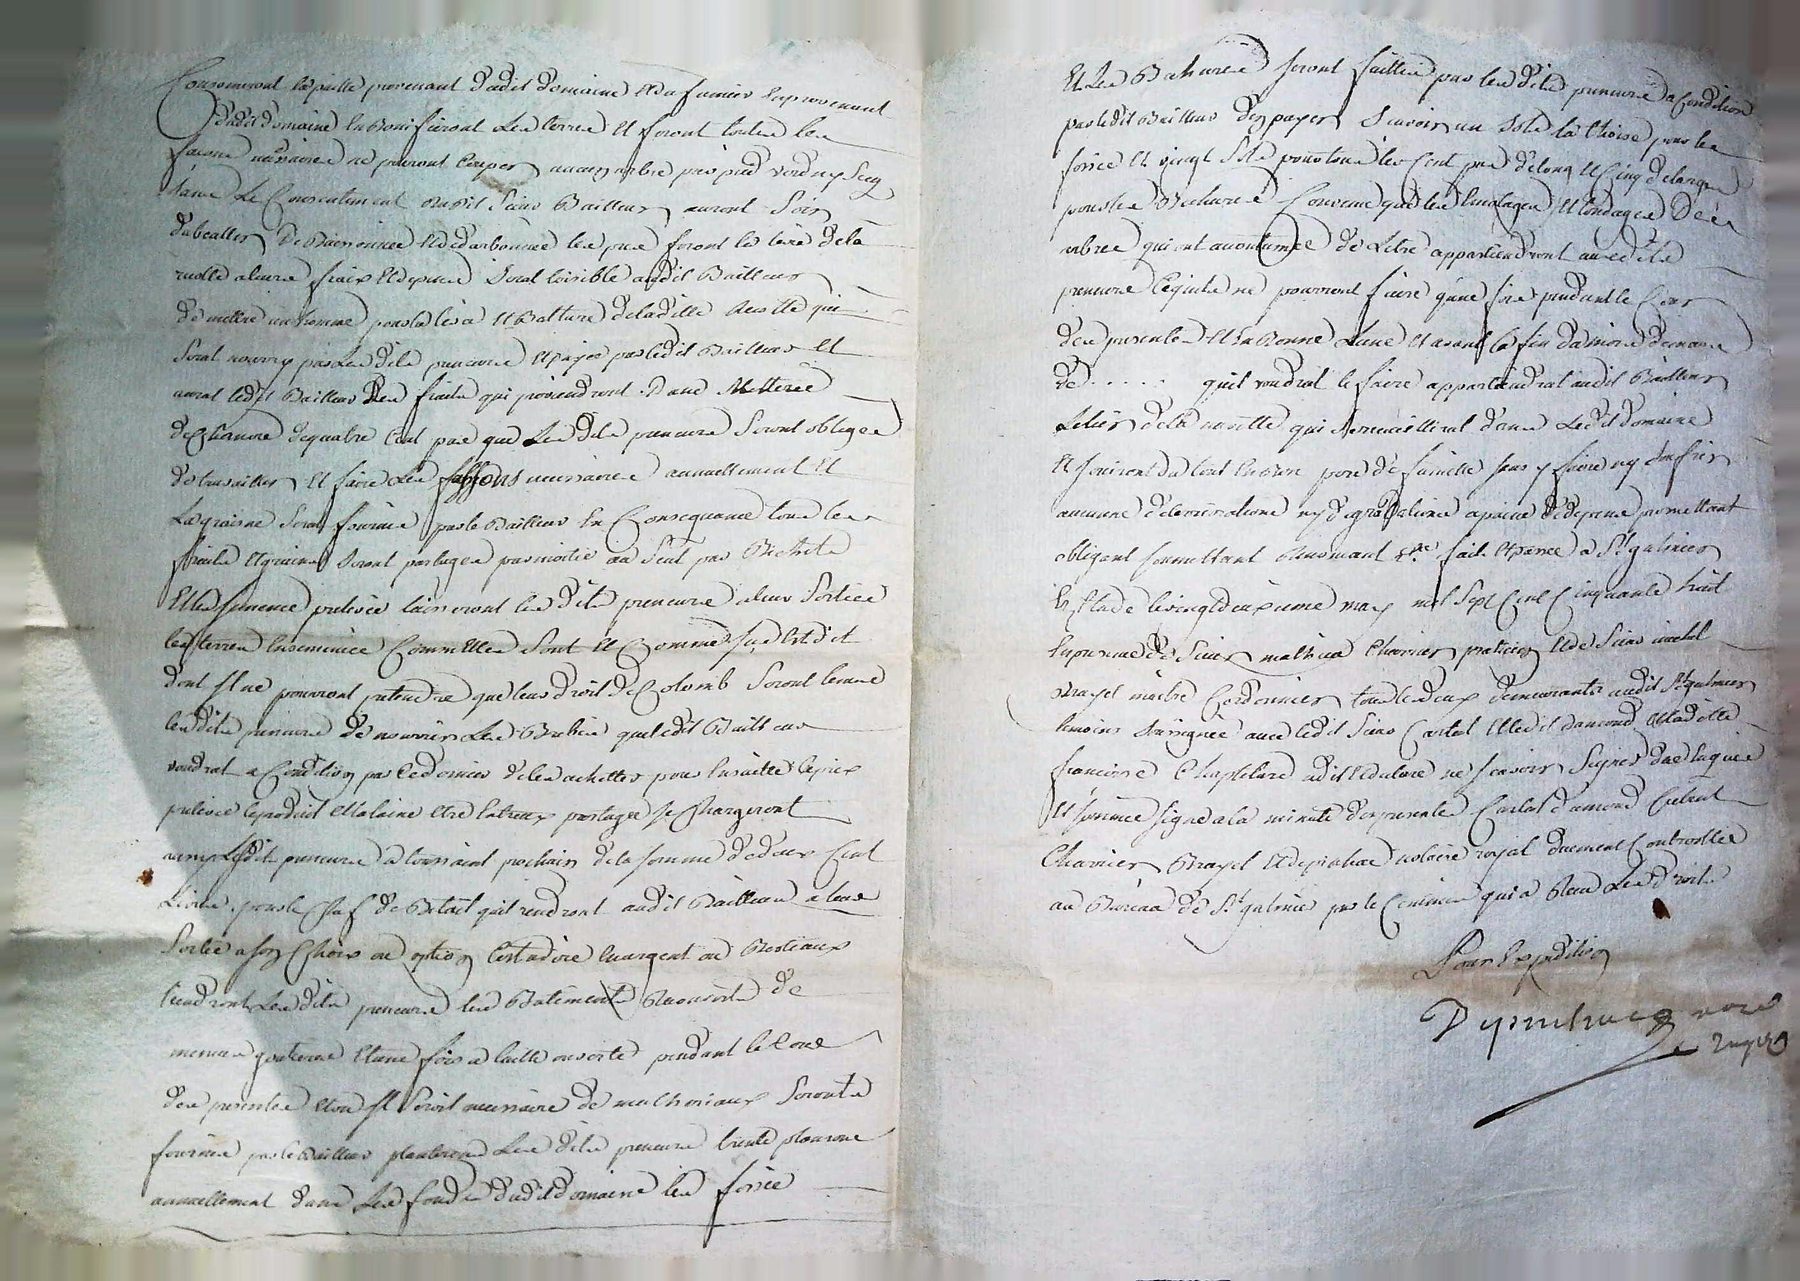 Consomeront la paille provenant dudit domaine et du fumier en provenant
dudit domaine en Bonifieront les terres et feront toutes les
façons necessaires ne pourront Couper aucun arbre par pied verd ny secq
sans Le Consentement dudit Sieur Bailleur auront soin
de Buissonnee les pres feront les leve de la
a leurs fraix et depens Serat loisible audit Bailleur
de mettre un homme pour la leve et Batture de la ditte qui
Serat nourry par Les dits preneurs et payé par ledit Bailleur et
aurat ledit Bailleur les fruits qui proviendront dans
de Chanvre de quatre Cent pas que Les dits preneurs Seront obliges
de travailler et faire Les fassons necessaires annuellement et
La graine Serat fournie par le Bailleur En Consequance tous les
fruits et grains Seront partages par moitie au Seul par Bichets
Et les semence prelevée laisseront les dits preneurs a leur Sortie
les terres Ensemincé Comm Elles Sont et Comme sus Est dit
dont Il ne pourront pretendre que leur droit de Colomb Seront tenus
les dits preneurs de nourrir Les Brebis que ledit Bailleur
voudrat a Condition par Ce dernier de les achetter pour Ensuitte le prix
prelevé le produit et la laine Etre Entreux partagés se Chargeront
Lesdits preneurs a toussaint prochain de la somme de deux Cent
Livres pour le Chef de Betail quil rendront audit Bailleur a leur
Sortie a son Choix ou option Cest a dire En argent ou Bestiaux
tiendront Les dits preneurs les Batiments Recouverts de
menues goutieres Et une fois a taille ouverte pendant le Cour
des presentes et ou Il Seroit necessaire de matheriaux Seronts
fournies par le Bailleur planteront Les dits preneurs trente plansons
annuellement dans Les fonds dudit domaine les fossés
Et Les seront faittes par les dits preneurs a Condition
par ledit Bailleur de payer Scavoir un Sols la thoise pour les
fossés et vingt Sols pour tous les Cent pas de long et Cinq de large
pour les Convenu que les Emolages et Londages des
arbres qui ont accoutumés de Letre appartiendront aux dits
preneurs Ce quils ne pourront faire quune fois pendant le Cour
des presentes et En Bonne Lune et avant la fin du mois de mars
de . . . . . quil voudrat le faire appartiendrat audit Bailleur
de la qui Se recueillirat dans Ledit domaine
Et jouiront du tout En bon pere de famille sans y faire ny souffrir
aucunes deteriorations ny degradations a peine de depens promettant
obligent soumettant Renoncant &c. fait et passé a St galmier
En Etude le vingt deuxieme may mil Sept Cent Cinquante huit
En presence de Sieur mathieu Charrier praticien et de Sieur michel
Brayet maitre Cordonnier tous les deux demeurants audit St galmier
temoins Soussignés avec ledit Sieur Cartal et ledit et ladotte
francoise a dit et declaré ne scavoir Signer de ce Enquise
Et sommée signé a la minute des presentes Cartal
Charrier Brayet et notaire royal duement Controllée
au Bureau de St galmier par le qui a Recu Les droits
Pour Expedition
nore